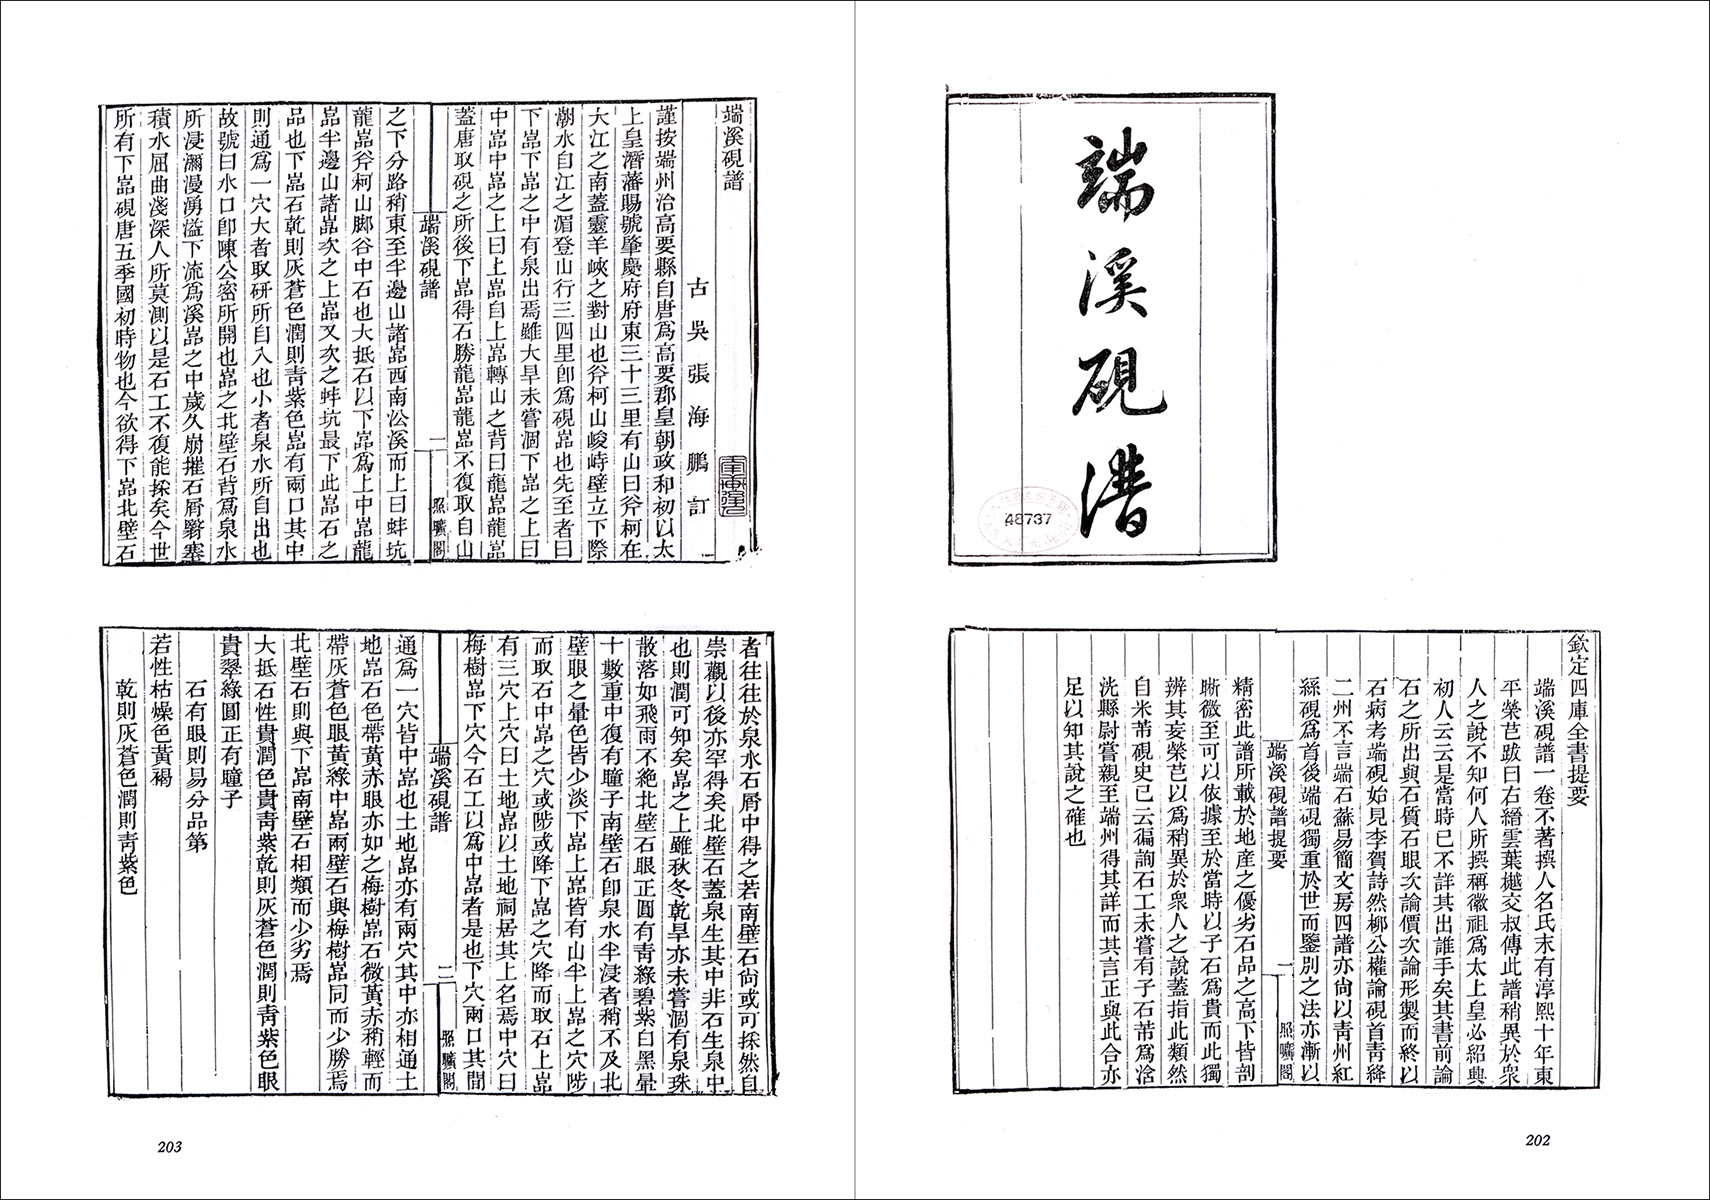 端溪硯譜
48737
欽定四庫全書提要
端溪硯譜一卷不著撰人名氏末有淳熙十年東
平榮芑跋曰右縉雲葉樾交叔傳此譜稍異於衆
人之說不知何人所撰稱徽祖爲太上皇必紹興
初人云云是當時已不詳其出誰手矣其書前論
石之所出與石質石眼次論價次論形製而終以
石病考端硯始見李賀詩然柳公權論硯首青絳
二州不言端石蘇易簡文房四譜亦尚以青州紅
絲硯爲首後端硯獨重於世而鑒別之法亦漸以
端溪硯譜提要
一
照曠閣
精密此譜所載於地產之優劣石品之高下皆剖
晰微至可以依據至於當時以子石爲貴而此獨
辨其妄榮芑以爲稍異於衆人之說蓋指此類然
自米芾硯史已云徧詢石工未嘗有子石芾爲浛
洸縣尉嘗親至端州得其詳而其言正與此合亦
足以知其說之確也
202
端溪硯譜
古吳張海鵬訂
謹按端州治高要縣自唐爲高要郡皇朝政和初以太
上皇潛藩賜號肇慶府府東三十三里有山曰斧柯在
大江之南蓋靈羊峽之對山也斧柯山峻峙壁立下際
潮水自江之湄登山行三四里卽爲硯嵓也先至者曰
下嵓下嵓之中有泉出焉雖大旱未嘗涸下嵓之上曰
中嵓中嵓之上曰上嵓自上嵓轉山之背曰龍嵓龍嵓
蓋唐取硯之所後下嵓得石勝龍嵓龍嵓不復取自山
端溪硯譜
一
照曠閣
之下分路稍東至半邊山諸嵓西南沿溪而上曰蚌坑
龍嵓斧柯山脚谷中石也大抵石以下嵓爲上中嵓龍
嵓半邊山諸嵓次之上嵓又次之蚌坑最下此嵓石之
品也下嵓石乾則灰蒼色潤則青紫色嵓有兩口其中
則通爲一穴大者取研所自入也小者泉水所自出也
故號曰水口卽陳公密所開也嵓之北壁石背爲泉水
所浸瀰漫湧溢下流爲溪嵓之中歲久崩摧石屑翳塞
積水屈曲淺深人所莫測以是石工不復能採矣今世
所有下嵓硯唐五季國初時物也今欲得下嵓北壁石
者往往於泉水石屑中得之若南壁石尚或可採然自
崇觀以後亦罕得矣北壁石蓋泉生其中非石生泉中
也則潤可知矣嵓之上雖秋冬乾旱亦未嘗涸有泉珠
散落如飛雨不絶北壁石眼正圓有青綠碧紫白黑暈
十數重中復有瞳子南壁石卽泉水半浸者稍不及北
壁眼之暈色皆少淡下嵓上嵓皆有山半上嵓之穴陟
而取石中嵓之穴或陟或降下嵓之穴降而取石上嵓
有三穴上穴曰土地嵓以土地祠居其上名焉中穴曰
梅樹嵓下穴今石工以爲中嵓者是也下穴兩口其間
端溪硯譜
二
照曠閣
通爲一穴皆中嵓也土地嵓亦有兩穴其中亦相通土
地嵓石色帶黃赤眼亦如之梅樹嵓石微黃赤稍輕而
帶灰蒼色眼黃綠中嵓兩壁石與梅樹嵓同而少勝焉
北壁石則與下嵓南壁石相類而少劣焉
大抵石性貴潤色貴青紫乾則灰蒼色潤則青紫色眼
貴翠綠圓正有瞳子
石有眼則易分品第
若性枯燥色黃褐
乾則灰蒼色潤則青紫色
203